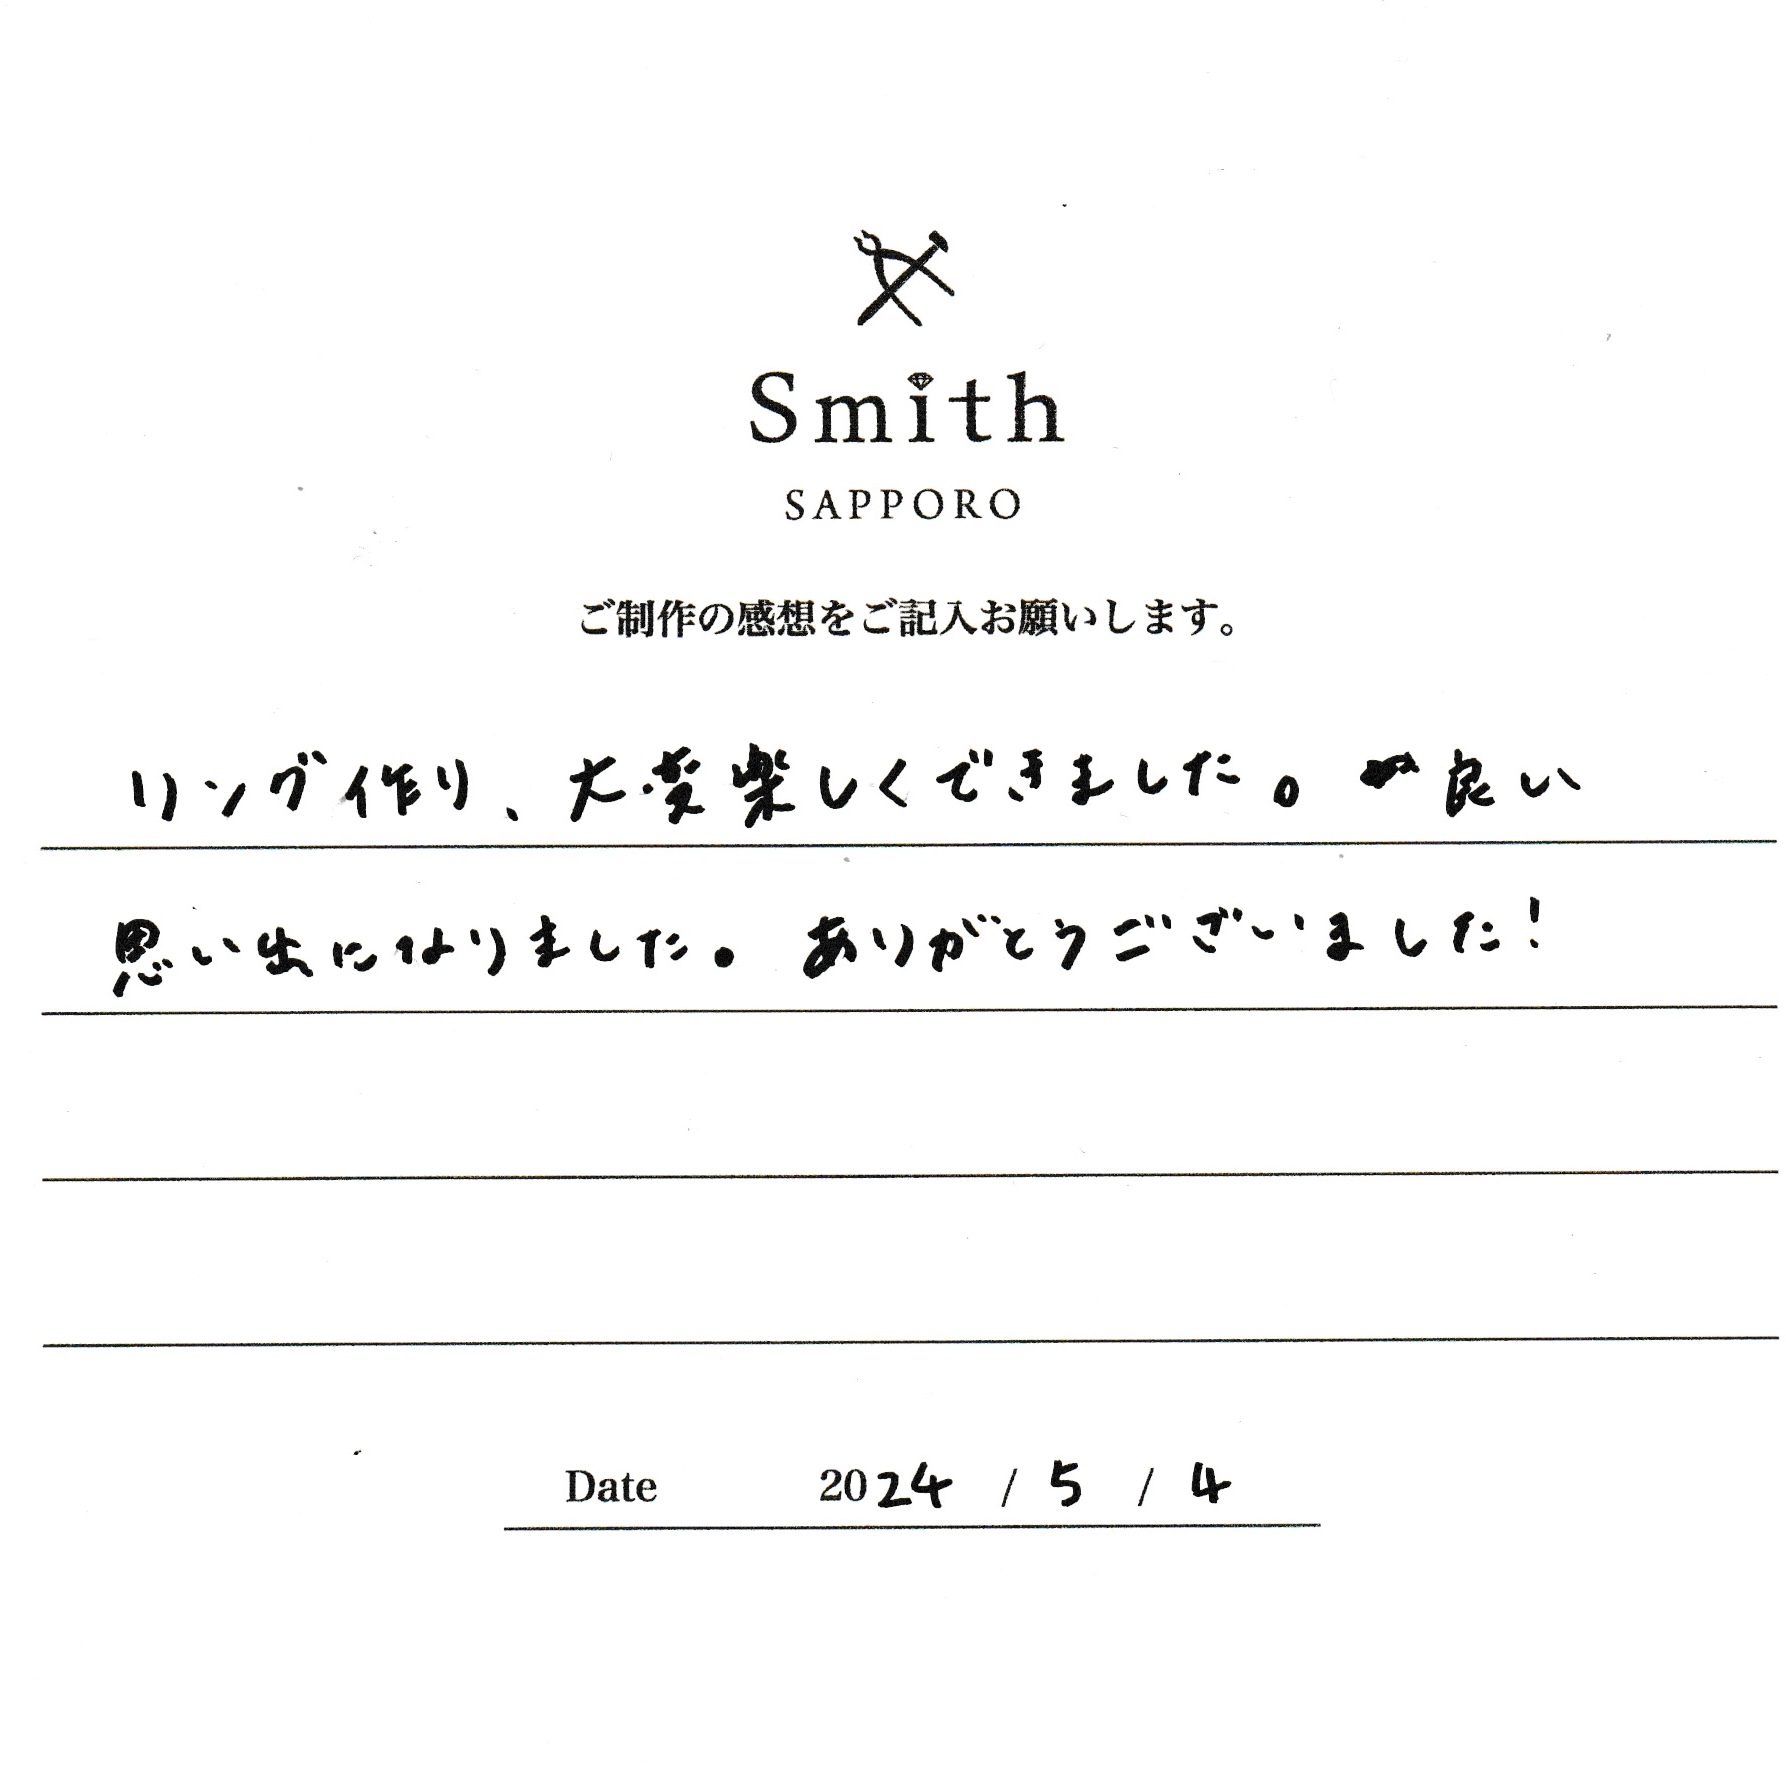 Smith
SAPPORO
ご制作の感想をご記入お願いします。
リング作り、大変楽しくできました。良い
思い出になりました。ありがとうございました!
Date 2024 / 5 / 4